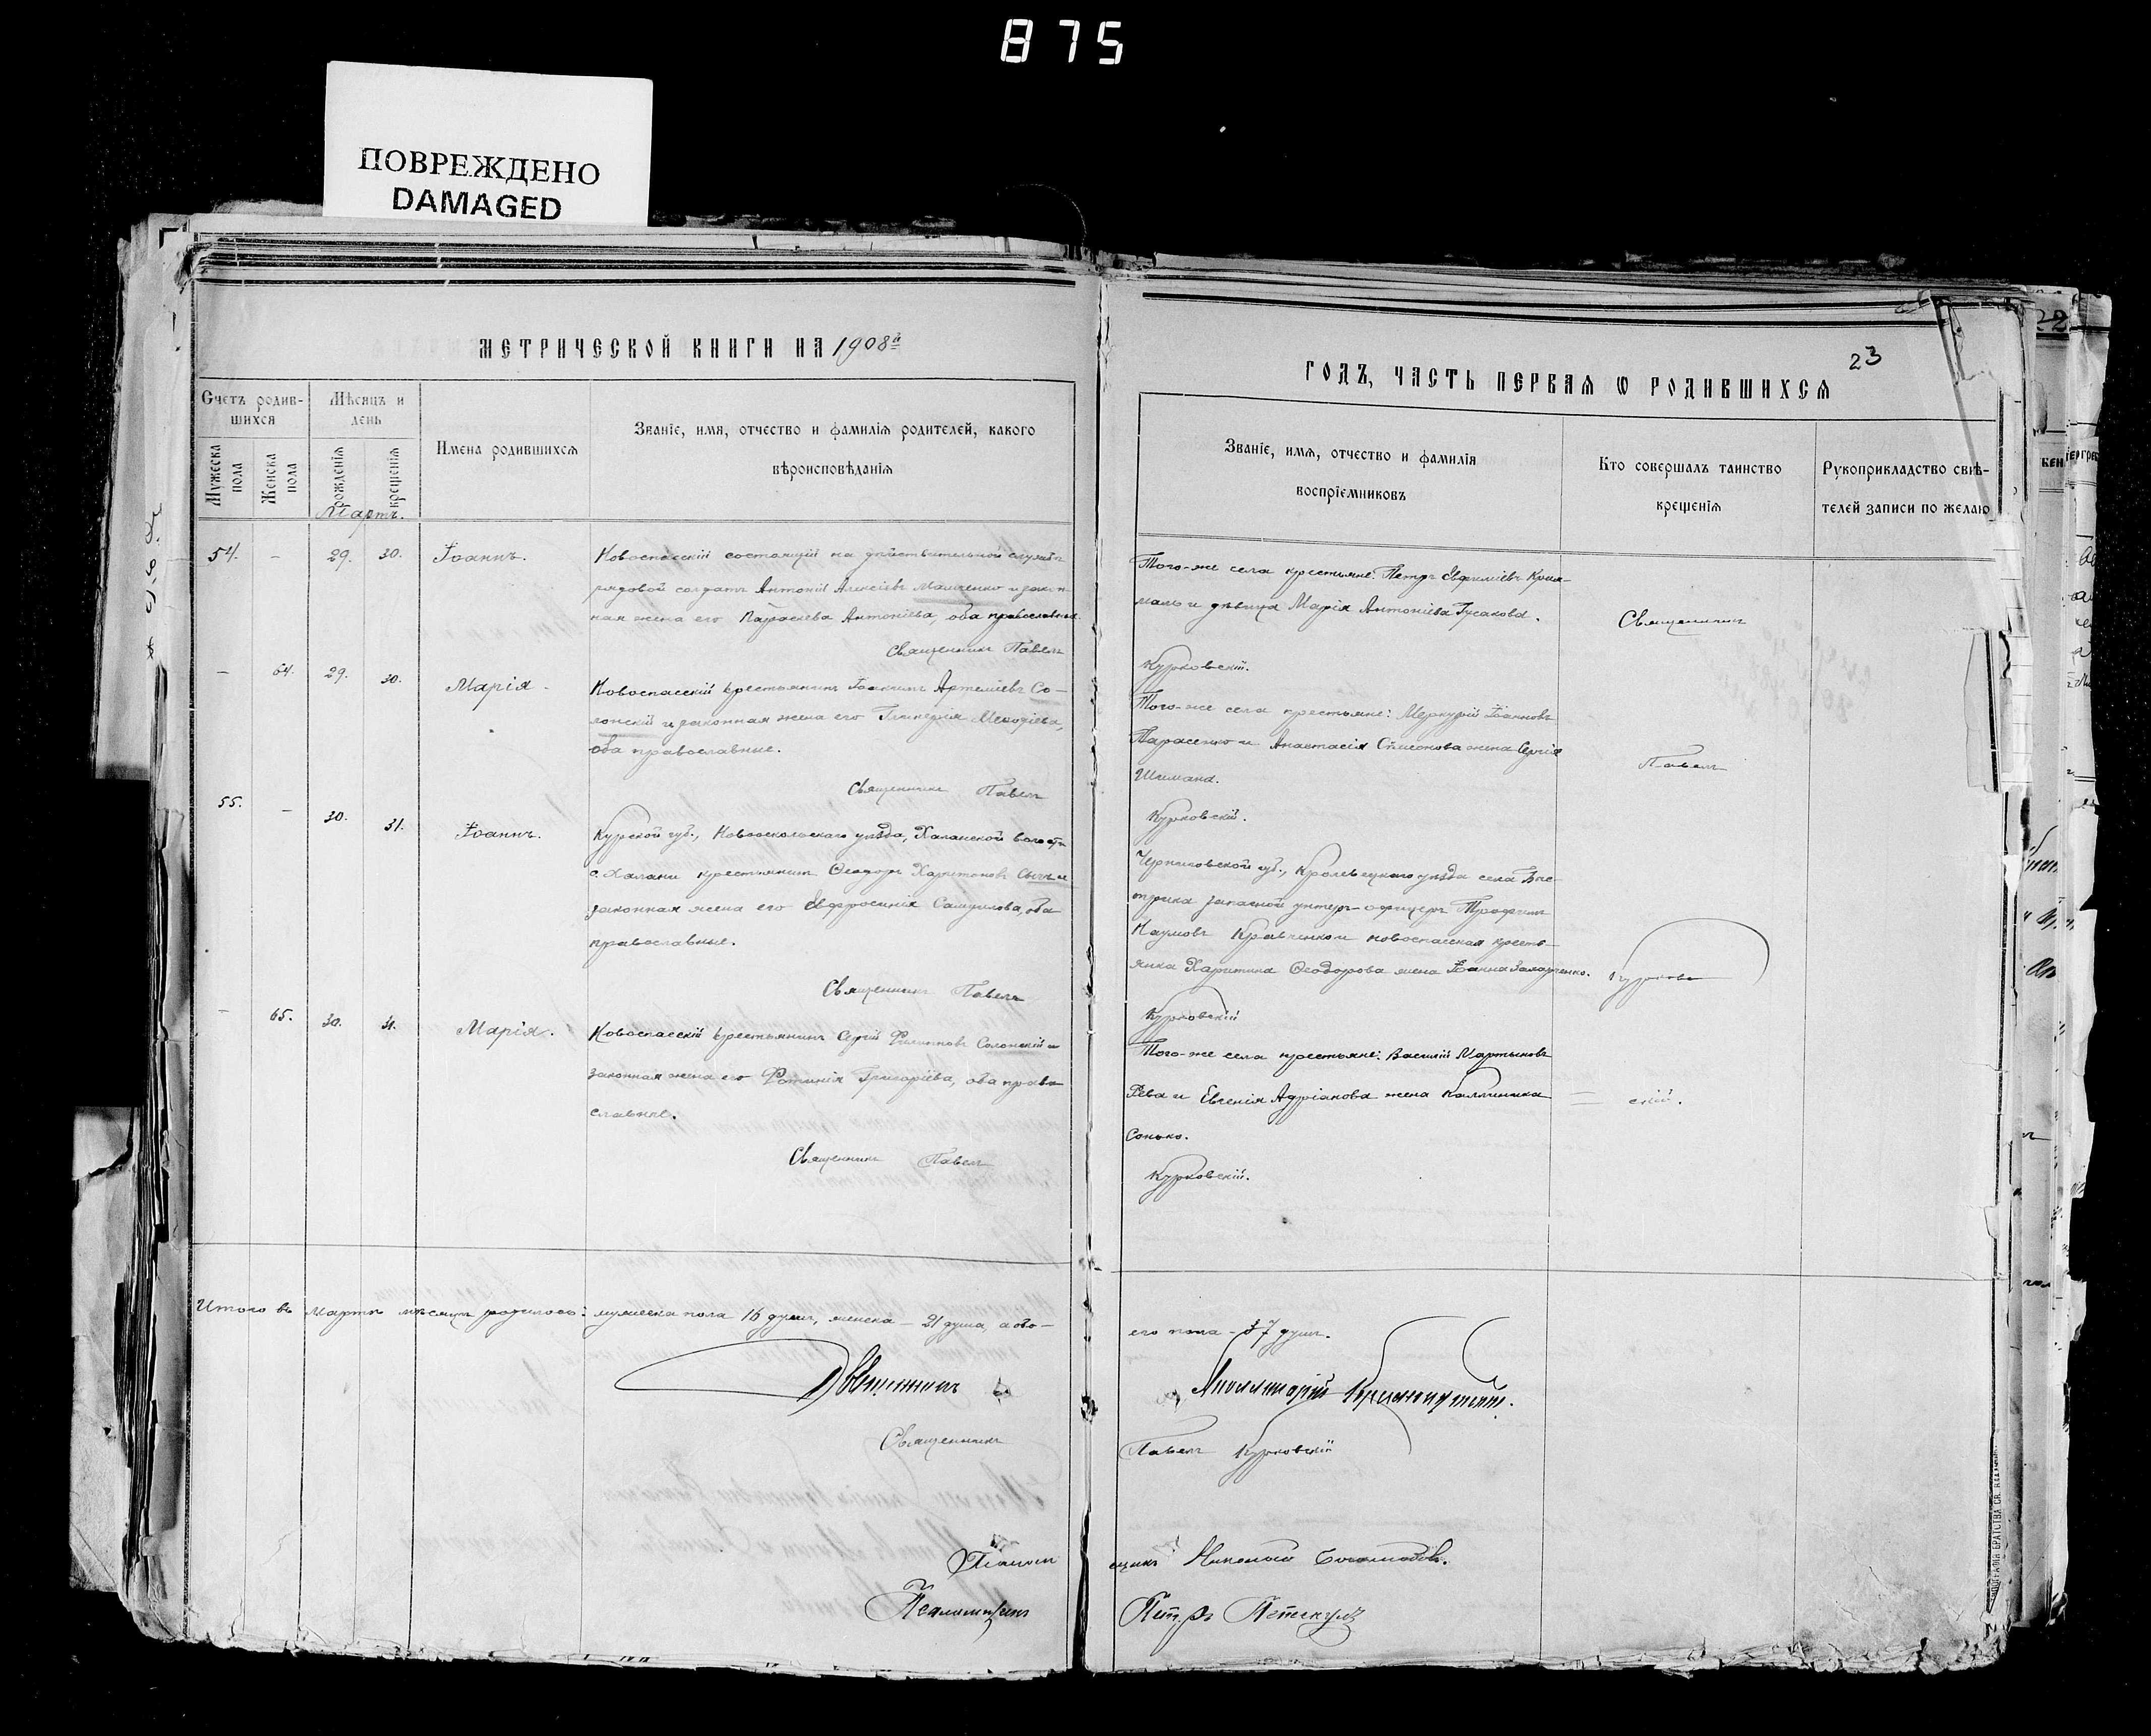 875
ПОВРЕЖДЕНО
DAMAGED
МЕТРИЧЕСКОЙ КНИГИ НА 1908й
Счетъ родив-
шихся
Мужеска пола
Женска пола
Мѣсяцъ и
день
рожденія
крещенія
Имена родившихся
Званіе, имя, отчество и фамилія родителей, какого
вѣроисповѣданія
Мартъ.
54. - 29. 30. Іоаннъ. Новоспасскій состоящій на дѣйствительной службѣ
рядовой солдатъ Антоній Алексіевъ Мащенко и закон-
ная жена его Параскева Антоніева, оба православные.
Священникъ Павелъ
- 64. 29. 30. Марія. Новоспасскій крестьянинъ Іоакимъ Артеміевъ Со-
лонскій и законная жена его Гликерія Меѳодіева,
оба православные.
Священникъ Павелъ
55. - 30. 31. Іоаннъ. Курской губ., Новооскольскаго уѣзда, Халанской волости
с. Халани крестьянинъ Ѳеодоръ Харитоновъ Сычъ и
законная жена его Евфросинія Самуилова, оба
православные.
Священникъ Павелъ
- 65. 30. 31. Марія. Новоспасскій крестьянинъ Сергій Филипповъ Солонскій и
законная жена его Фотинія Григоріева, оба право-
славные.
Священникъ Павелъ
Итого въ Мартѣ мѣсяцѣ родилось: мужеска пола 16 душъ, женска - 21 душа, а обо-
Священникъ
Священникъ
Псаломщикъ
ГОДЪ, ЧАСТЬ ПЕРВАЯ Ѡ РОДИВШИХСЯ
23
Званіе, имя, отчество и фамилія
воспріемниковъ
Кто совершалъ таинство
крещенія
Рукоприкладство свидѣ-
телей записи по желаю
Того-же села крестьяне: Петръ Евфиміевъ
и дѣвица Марія Антоніева Гусакова.
Священникъ
Курковскій.
Того-же села крестьяне: Меркурій Іоанновъ
Тарасенко и Анастасія Симеонова жена Сергія
Шимана.
Павелъ
Курковскій.
Черниговской губ., Кролевецкаго уѣзда села Быс-
трика запасной унтеръ-офицеръ Трофимъ
Наумовъ Кравченко и новоспасская кресть-
янка Харитина Ѳеодорова жена Іоанна
Курков
Курковскій
Того-же села крестьяне: Василій Мартыновъ
Рева и Евгенія Адріанова жена Каллиника
скій.
Сонько.
Курковскій.
его пола - 37 душъ.
Аполлинарій
Павелъ Курковскій
щикъ Николай
Петръ